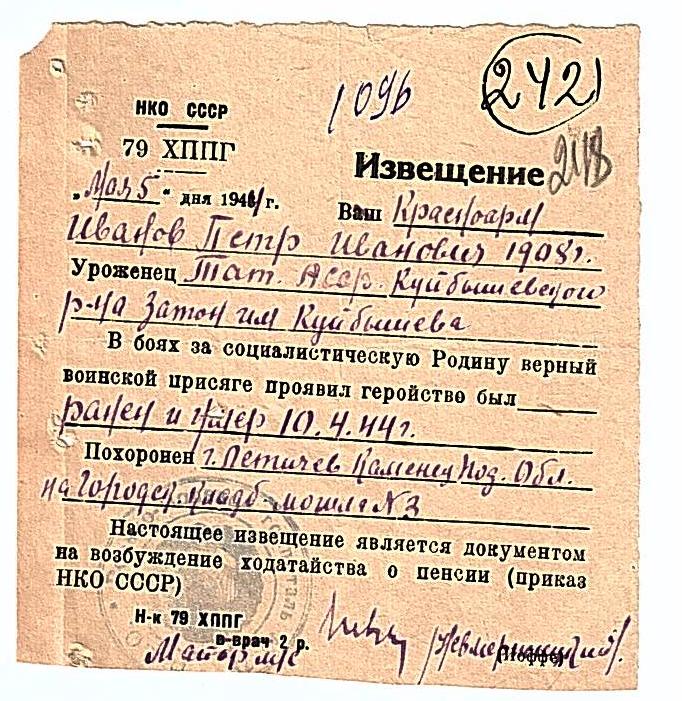 1096
242
2118
НКО СССР
79 ХППГ
Извещение
„Мая 5“ дня 1944 г.
Ваш Красноарм
Иванов Петр Иванович 1908г.
Уроженец Тат. АССР. Куйбышевского
р-на Затон им Куйбышева
В боях за социалистическую Родину верный
воинской присяге проявил геройство был
ранен и умер 10.4.44г.
Похоронен г. Летичев Каменец Под. Обл.
на Городск. кладб. могила №3
Настоящее извещение является документом
на возбуждение ходатайства о пенсии (приказ
НКО СССР)
Н-к 79 ХППГ
в-врач 2 р.
Майор м/с